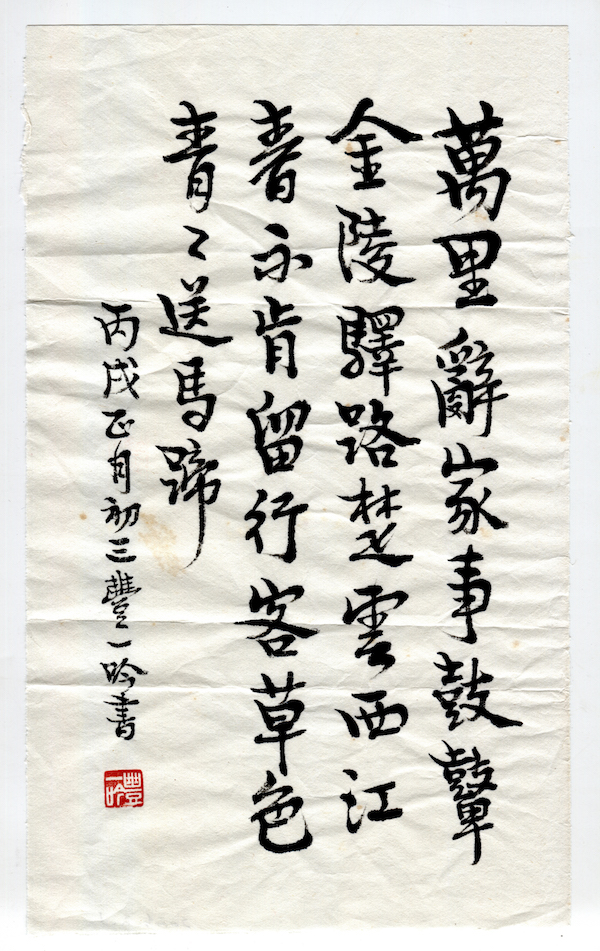 萬里辭家事鼓鼙
金陵驛路楚雲西江
春不肯留行客草色
青〻送馬蹄
丙戌正月初三豐一吟書
豐一吟